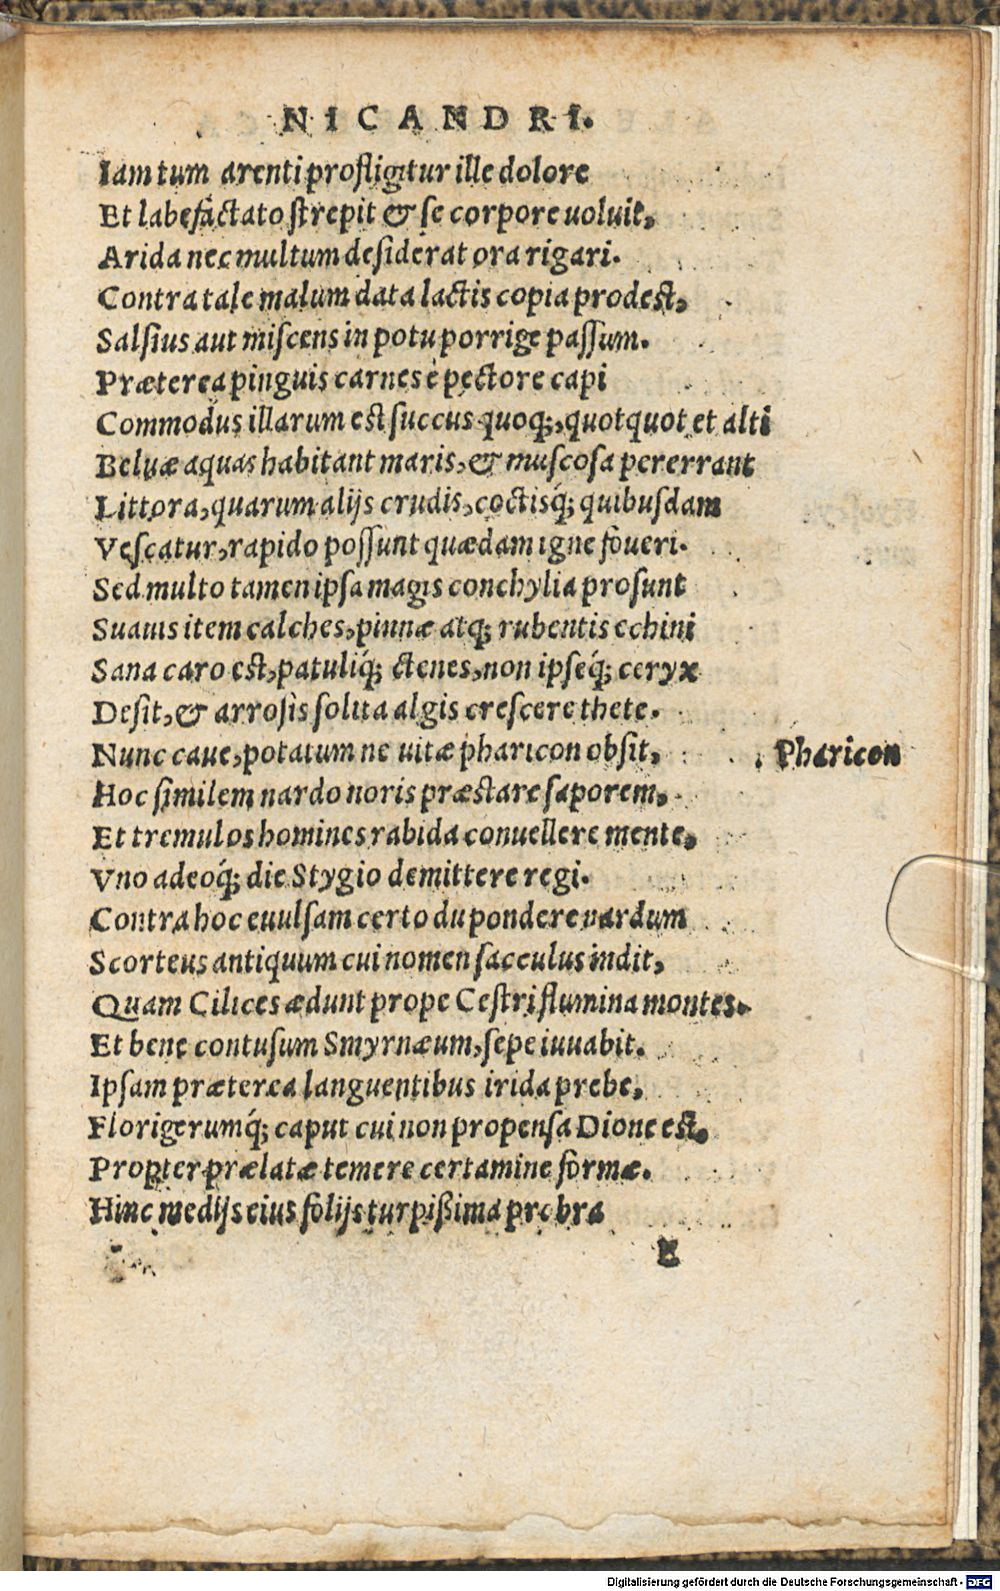 NICANDRI.
Iam tum arenti profligitur ille dolore
Et labefactato strepit & se corpore uoluit,
Arida nec multum desiderat ora rigari.
Contra tale malum data lactis copia prodest,
Salsius aut miscens in potu porrige passum.
Præterea pinguis carnes è pectore capi
Commodus illarum est succus quoq;, quotquot et alti
Beluæ aquas habitant maris, & muscosa pererrant
Littora, quarum alijs crudis, coctisq́; quibusdam
Vescatur, rapido possunt quædam igne foueri.
Sed multo tamen ipsa magis conchylia prosunt
Suauis item calches, pinnæ atq; rubentis echini
Sana caro est, patuliq́; ctenes, non ipseq́; ceryx
Desit, & arrosis solita algis crescere thete.
Nunc caue, potatum ne uitæ pharicon obsit,
Pharicon
Hoc similem nardo noris præstare saporem,
Et tremulos homines rabida conuellere mente,
Vno adeoq́; die Stygio demittere regi.
Contra hoc euulsam certo du pondere nardum
Scorteus antiquum cui nomen sacculus indit,
Quam Cilices ædunt prope Cestri flumina montes.
Et bene contusum Smyrnæum, sepe iuuabit.
Ipsam præterea languentibus irida prebe,
Florigerumq́; caput cui non propensa Dione est,
Propter prælatæ temere certamine formæ.
Hinc medijs eius folijs turpißima probra
E
Digitalisierung gefördert durch die Deutsche Forschungsgemeinschaft - DFG